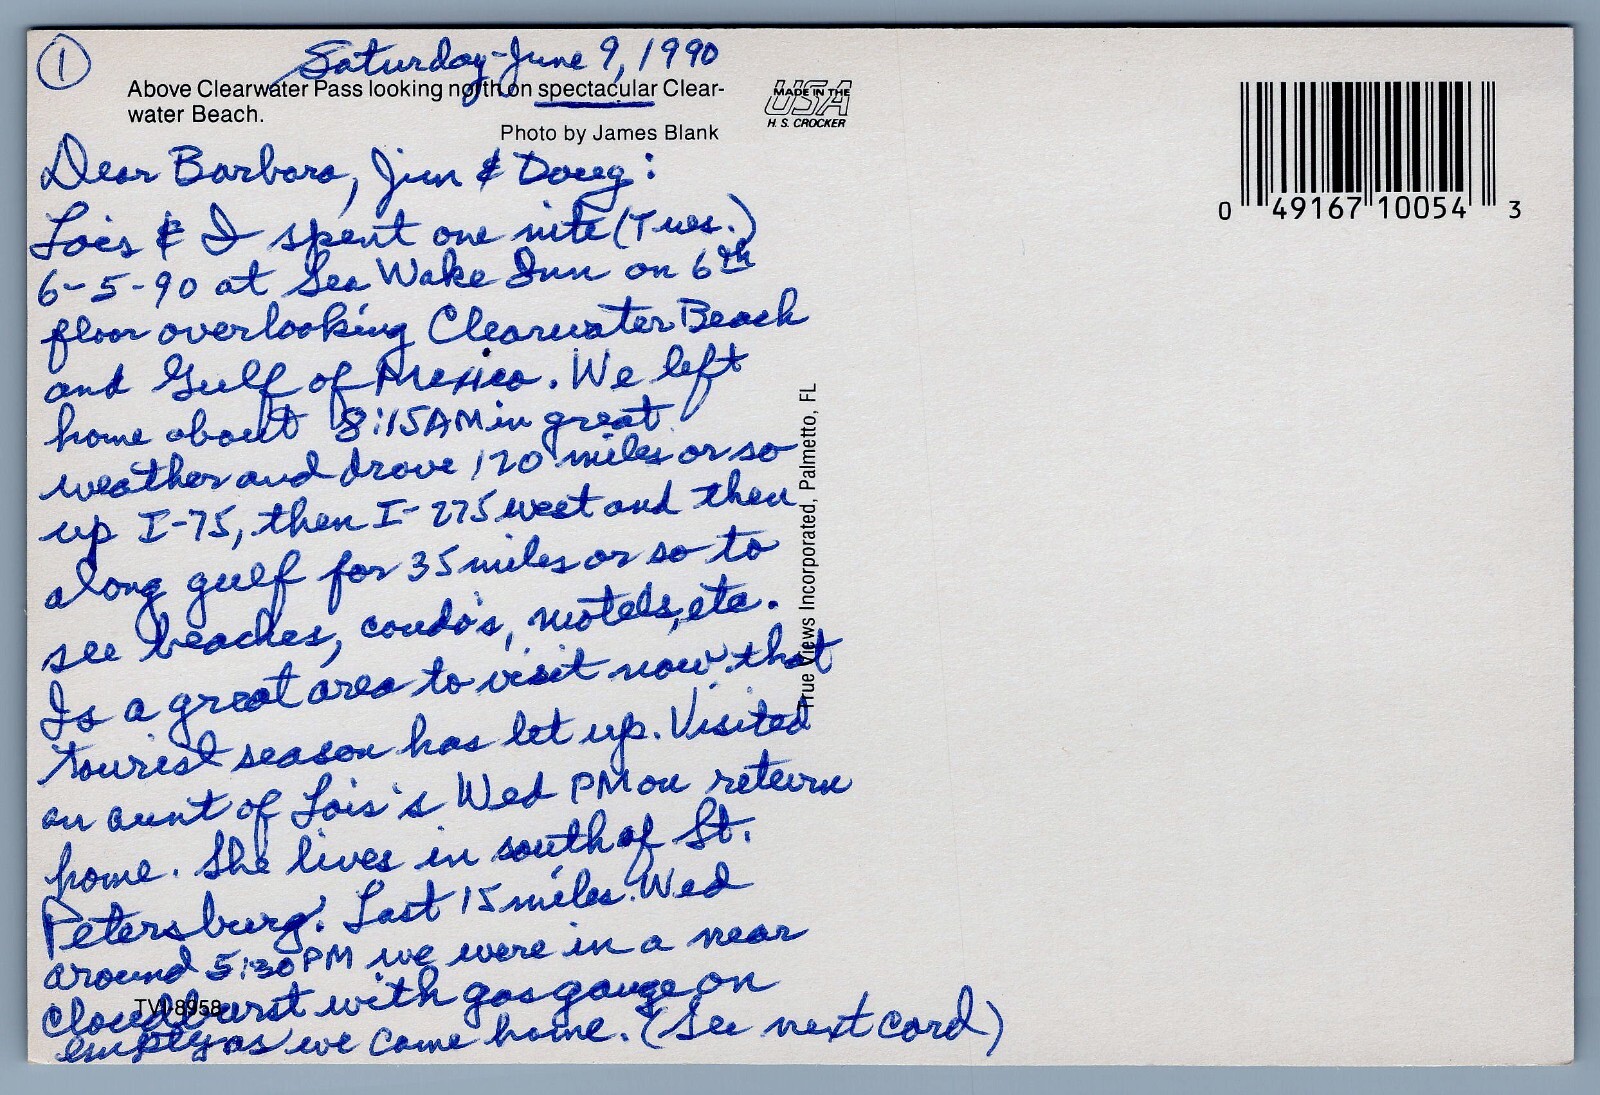 1
Saturday-June 9, 1990
Above Clearwater Pass looking north on spectacular Clear-
water Beach.
Photo by James Blank
MADE IN THE
USA
H. S. CROCKER
0 49167 10054 3
Dear Barbara, Jim & Doug:
Lois & I spent one nite (Tues.)
6-5-90 at Sea Wake Inn on 6th
floor overlooking Clearwater Beach
and Gulf of Mexico. We left
home about 8:15AM in great
weather and drove 120 miles or so
up I-75, then I-275 west and then
along gulf for 35 miles or so to
see beaches, condo's, motels, etc.
Is a great area to visit now that
tourist season has let up. Visited
an aunt of Lois's Wed PM on return
home. She lives in south of St.
Petersburg. Last 15 miles Wed
around 5:30PM we were in a near
cloudburst with gas gauge on
empty as we came home. (See next card)
True Views Incorporated, Palmetto, FL
TVI-8958